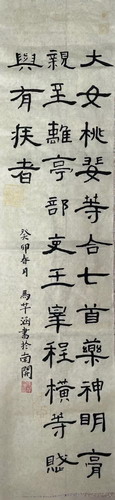 大女桃婓等合七首藥神明膏
親至離亭部吏王宰程橫等賦
與有疾者
癸卯春月 馬芊涵書於南開